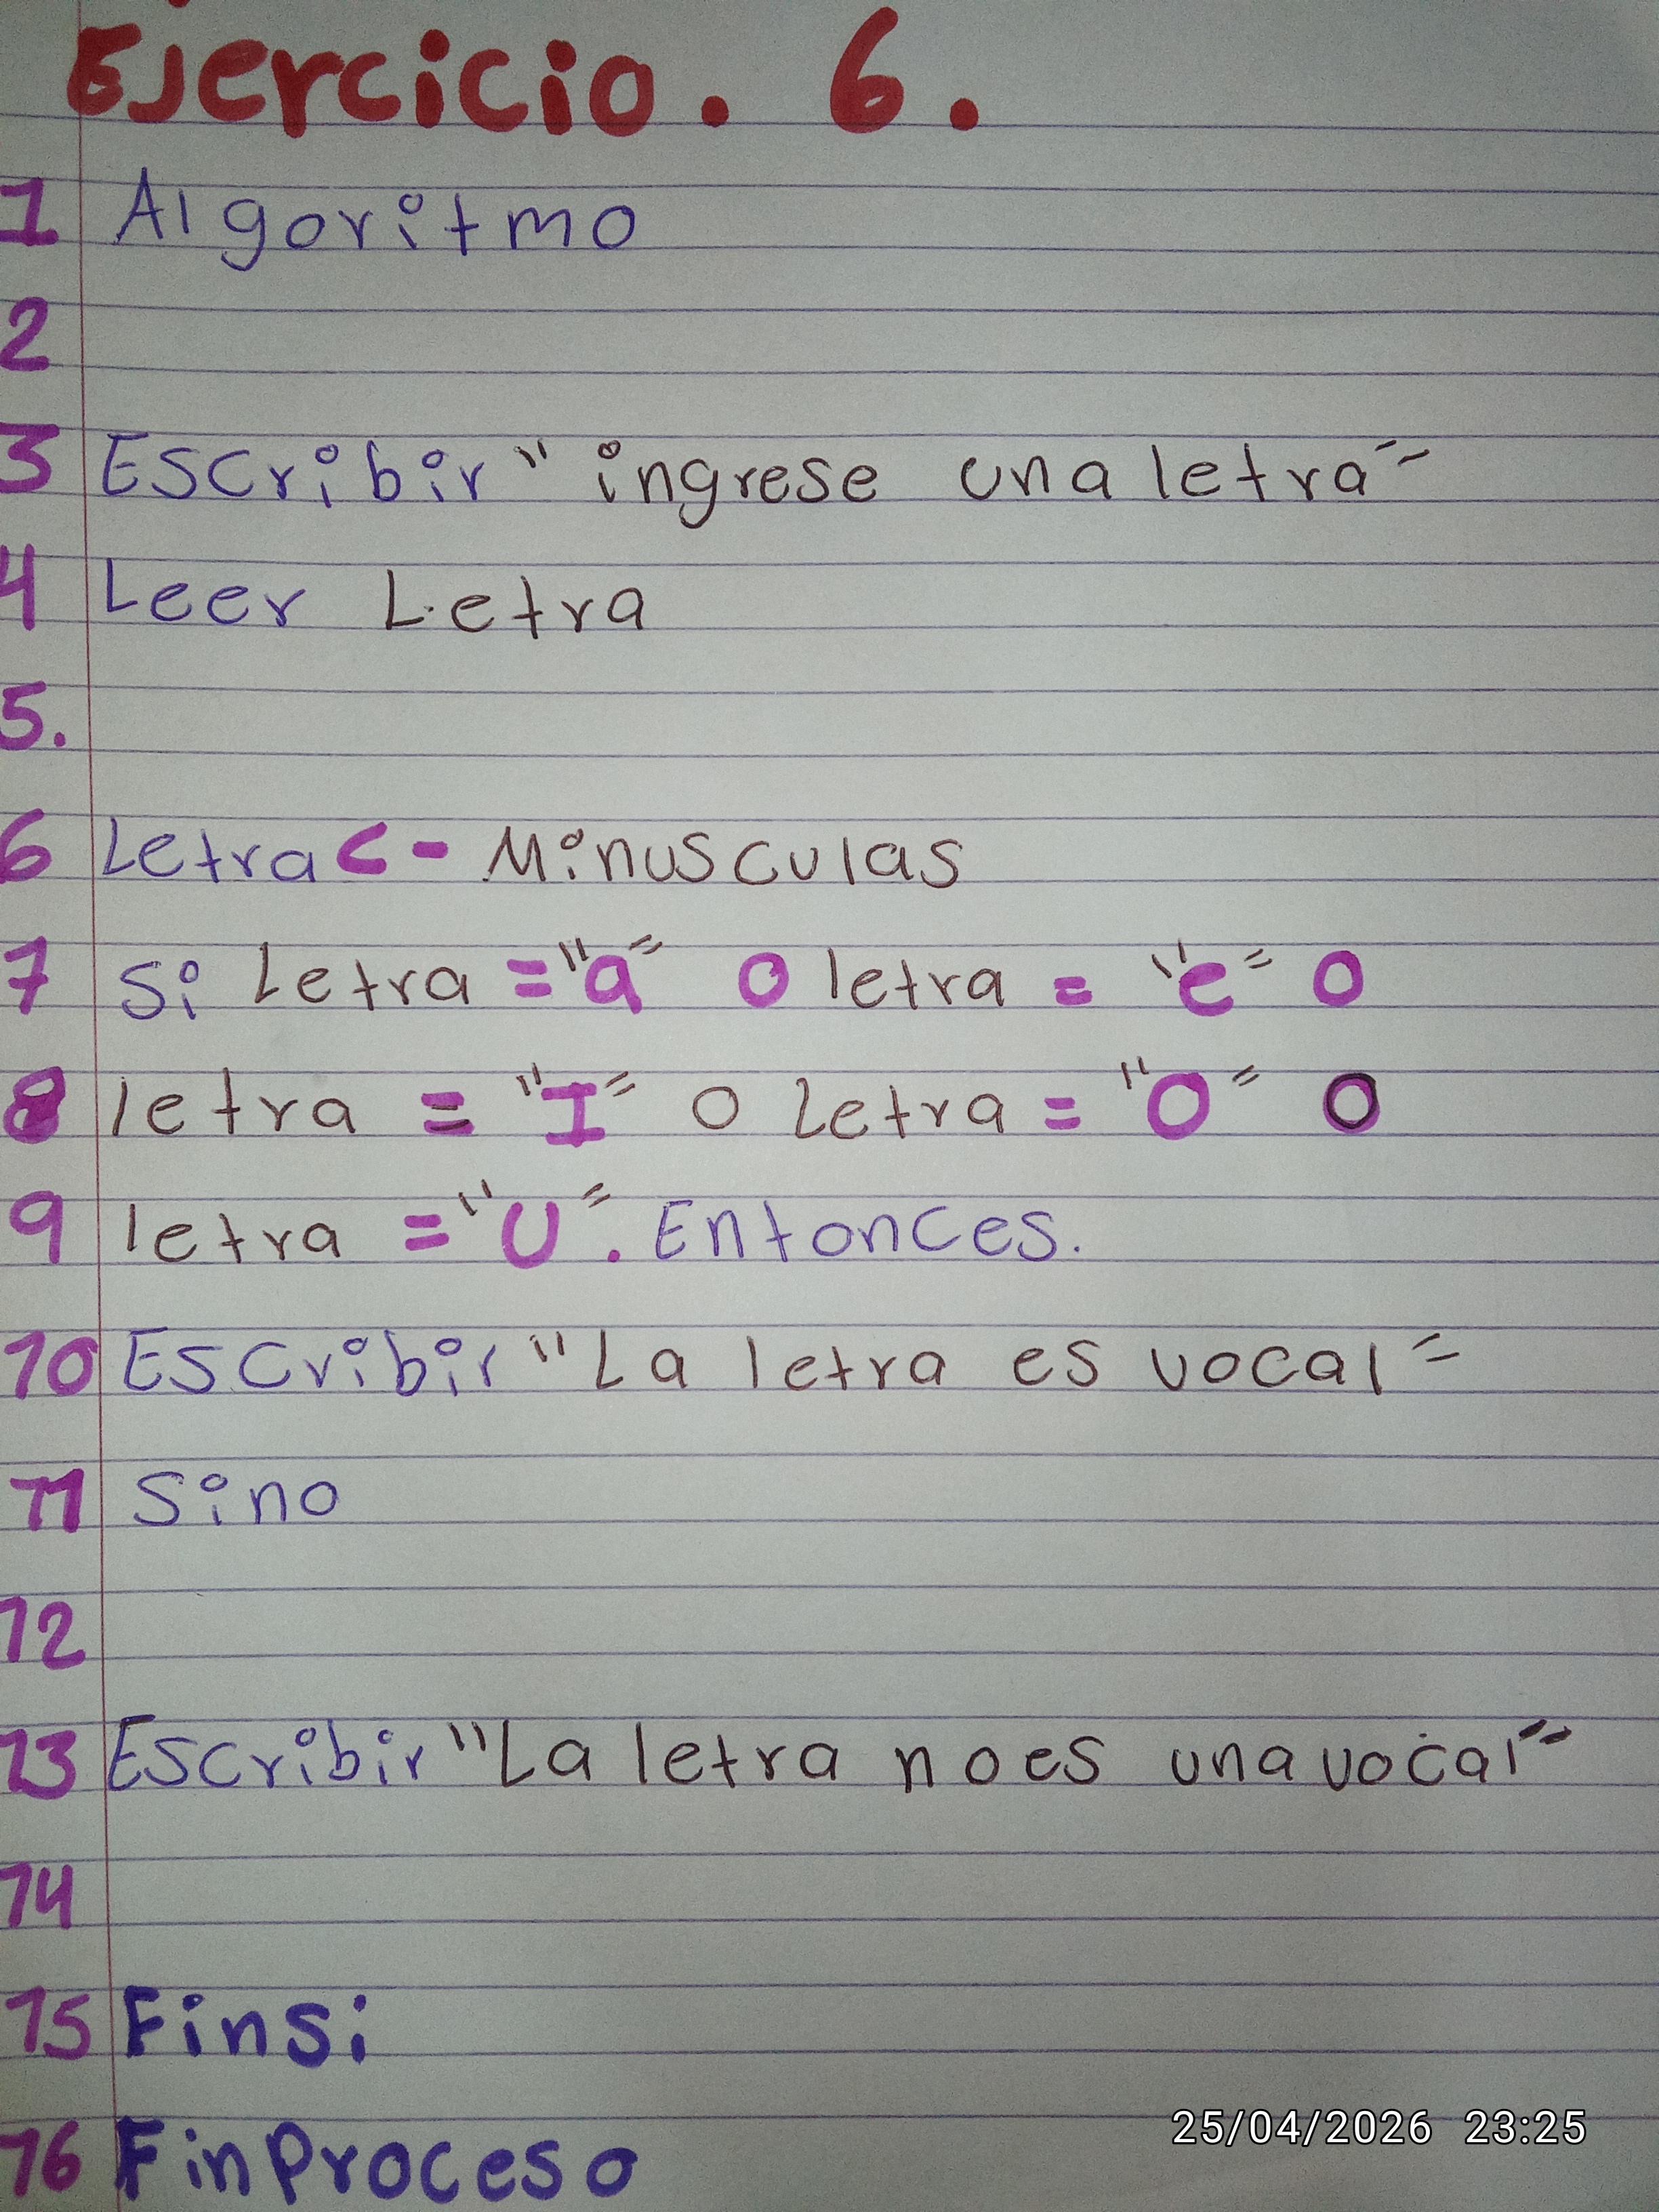 Ejercicio. 6.
1 Algoritmo
2
3 Escribir "ingrese una letra"
4 Leer Letra
5.
6 Letra <- Minusculas
7 Si Letra = "a" O letra = "e" O
8 letra = "I" O Letra = "O" O
9 letra = "U". Entonces.
10 Escribir "La letra es vocal"
11 Sino
12
13 Escribir "La letra no es una vocal"
14
15 Finsi
16 FinProceso
25/04/2026 23:25